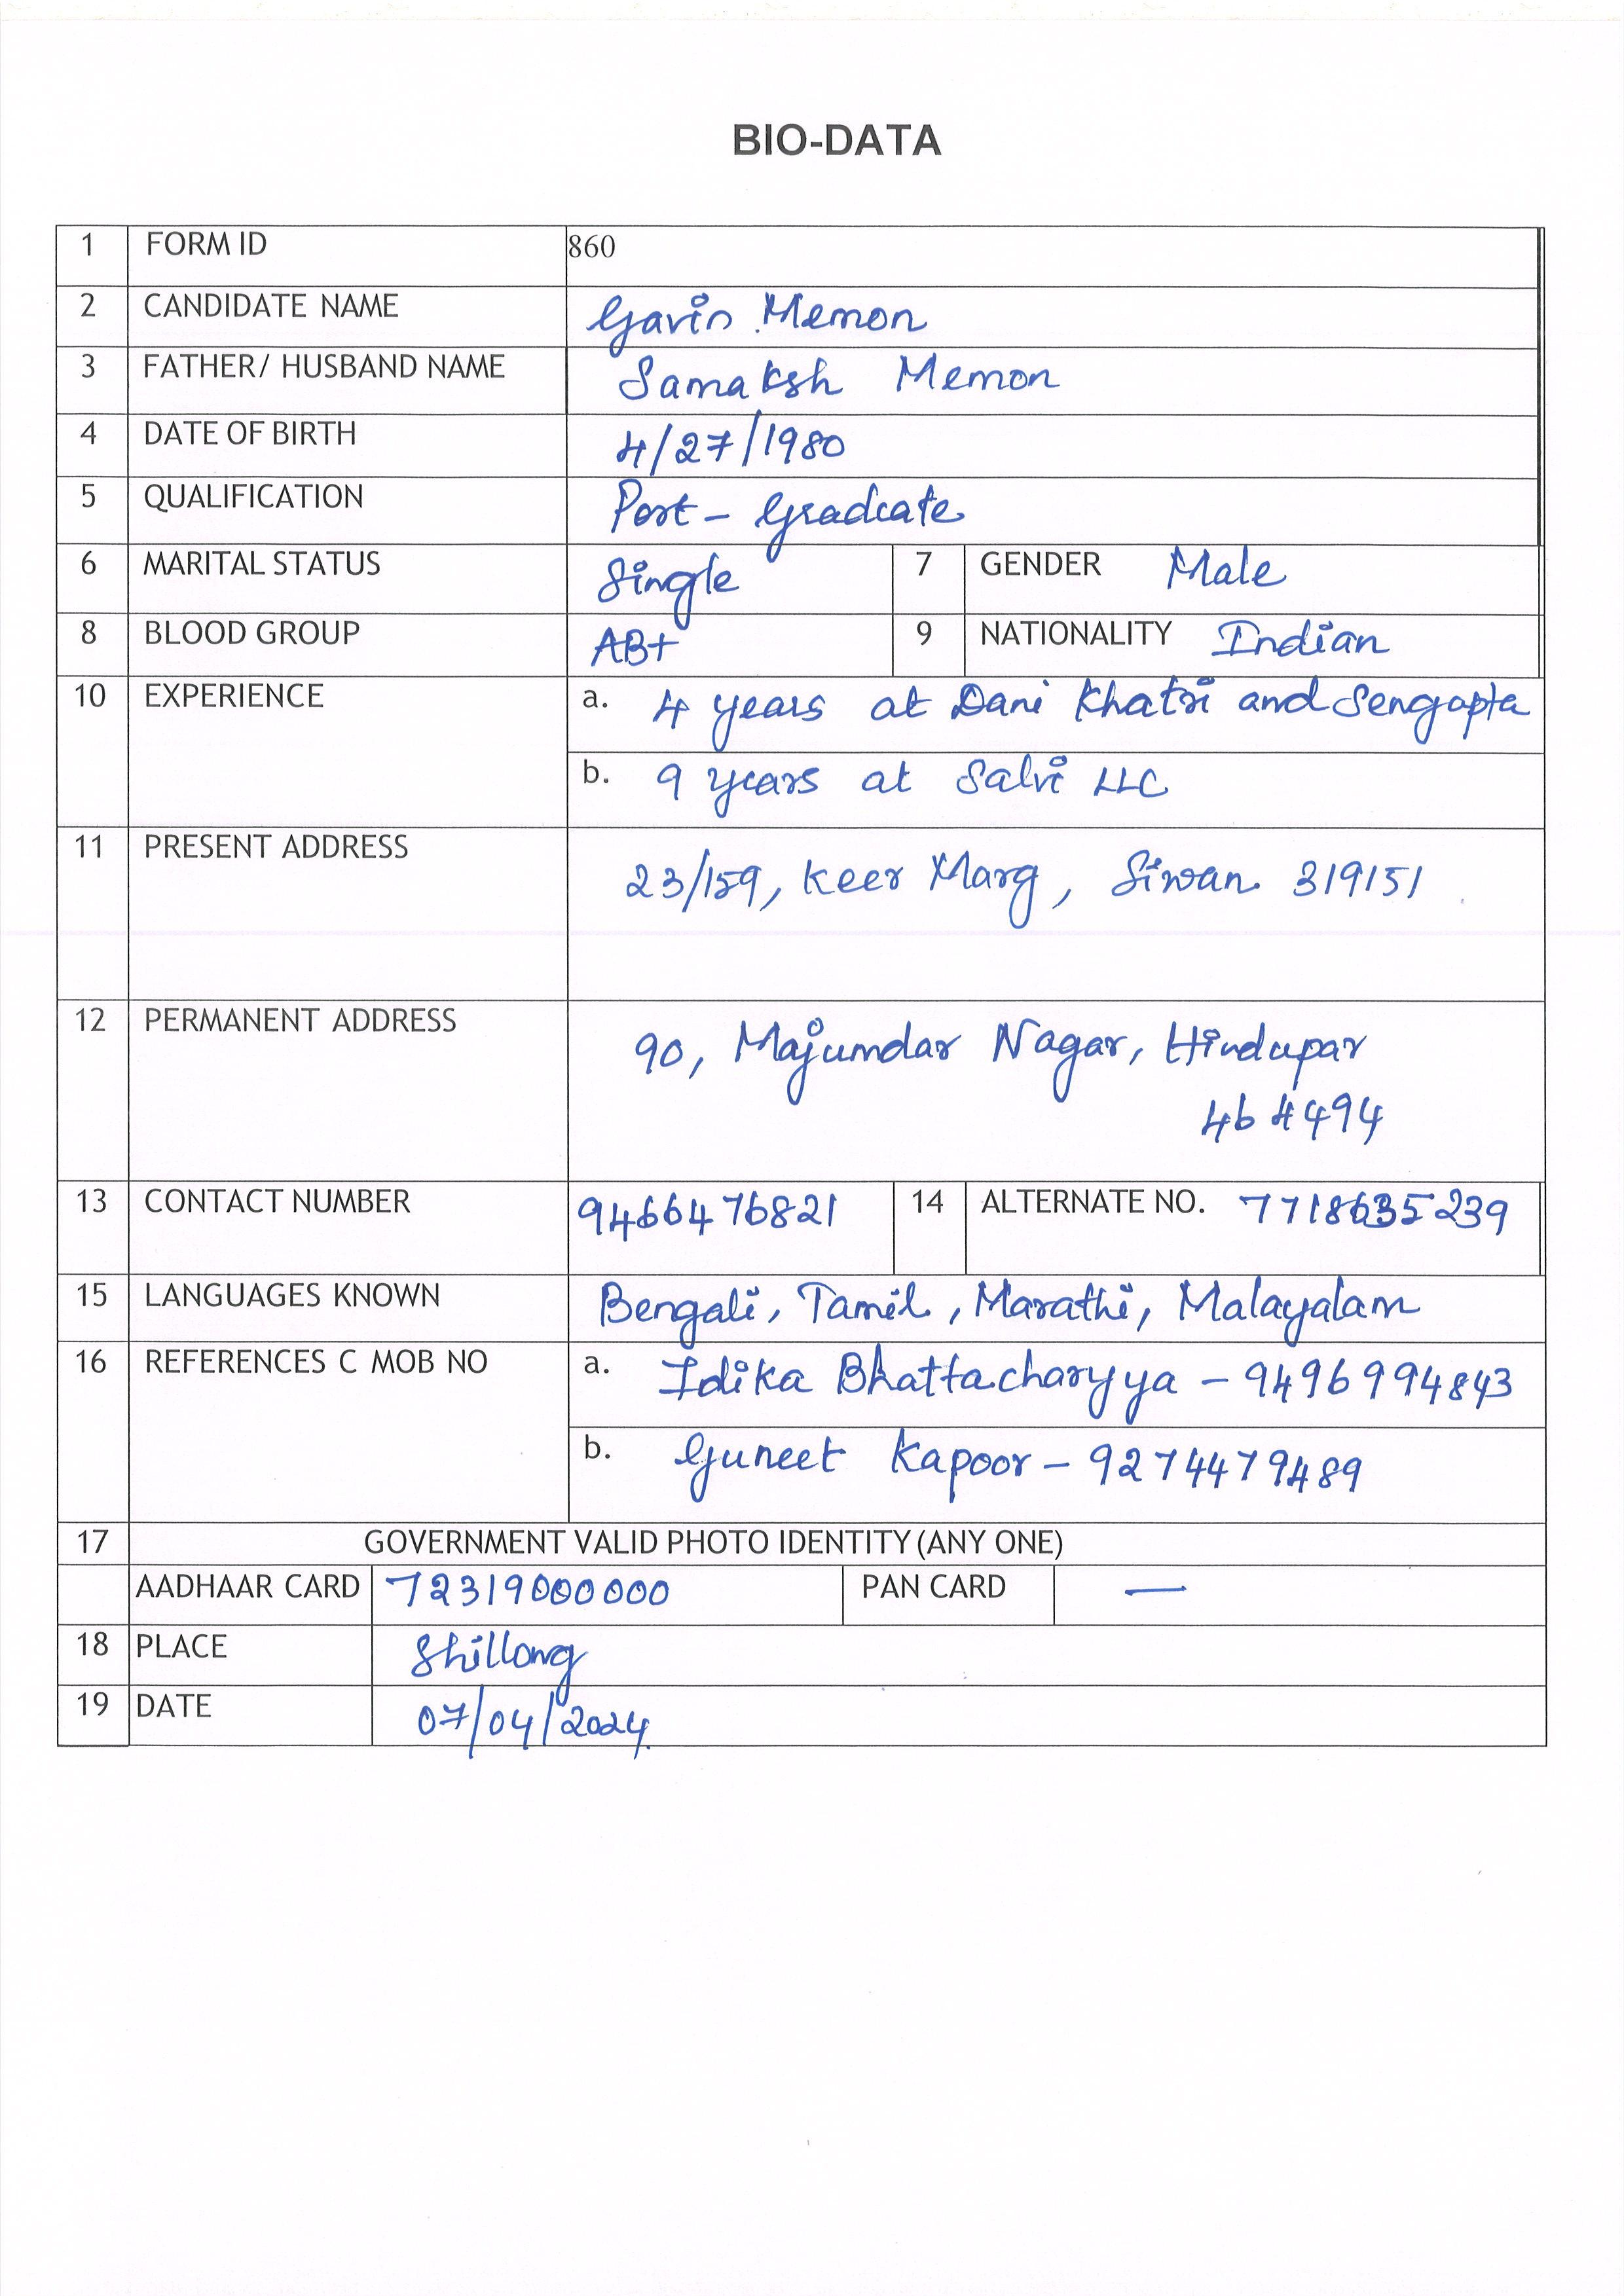 BIO-DATA
1 FORM ID 860
2 CANDIDATE NAME Gavin Memon
3 FATHER/ HUSBAND NAME Samaksh Memon
4 DATE OF BIRTH 4/27/1980
5 QUALIFICATION Post - Graduate
6 MARITAL STATUS Single 7 GENDER Male
8 BLOOD GROUP AB+ 9 NATIONALITY Indian
10 EXPERIENCE a. 4 years at Dani Khatri and Sengupta
b. 9 years at Salvi LLC
11 PRESENT ADDRESS
23/159, Keer Marg, Siwan 319151
12 PERMANENT ADDRESS
90, Majumdar Nagar, Hindupur
464494
13 CONTACT NUMBER 9466476821 14 ALTERNATE NO. 7718635239
15 LANGUAGES KNOWN Bengali, Tamil, Marathi, Malayalam
16 REFERENCES C MOB NO a. Idika Bhattacharyya - 9496994843
b. Guneet Kapoor - 9274479489
17 GOVERNMENT VALID PHOTO IDENTITY (ANY ONE)
AADHAAR CARD 72319000000 PAN CARD —
18 PLACE Shillong
19 DATE 07/04/2024